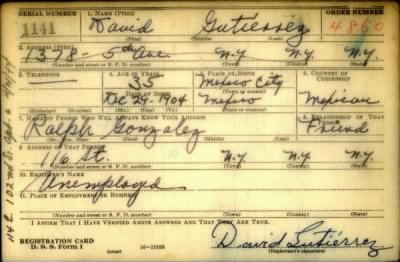 SERIAL NUMBER 1. NAME (Print) ORDER NUMBER
1141 David Gutiérrez 4860
(First) (Middle) (Last)
2. ADDRESS (Print)
1398 - 5th Ave N.Y N.Y N.Y
(Number and street or R. F. D. number) (Town) (County) (State)
3. TELEPHONE 4. AGE IN YEARS 5. PLACE OF BIRTH 6. COUNTRY OF CITIZENSHIP
35 Mexico City
DATE OF BIRTH (Town or county)
Dec 29 - 1904 Mexico Mexican
(Exchange) (Number) (Mo.) (Day) (Yr.) (State or country)
7. NAME OF PERSON WHO WILL ALWAYS KNOW YOUR ADDRESS 8. RELATIONSHIP OF THAT PERSON
Ralph Gonzalez Friend
(Mr., Mrs., Miss) (First) (Middle) (Last)
9. ADDRESS OF THAT PERSON
116 St. N.Y. N.Y. N.Y
(Number and street or R. F. D. number) (Town) (County) (State)
10. EMPLOYER'S NAME
Unemployed
11. PLACE OF EMPLOYMENT OR BUSINESS
(Number and street or R. F. D. number) (Town) (County) (State)
I AFFIRM THAT I HAVE VERIFIED ABOVE ANSWERS AND THAT THEY ARE TRUE.
REGISTRATION CARD
D. S. S. Form 1 (over) 16-17105 David Gutiérrez
(Registrant's signature)
114 E. 102nd St.